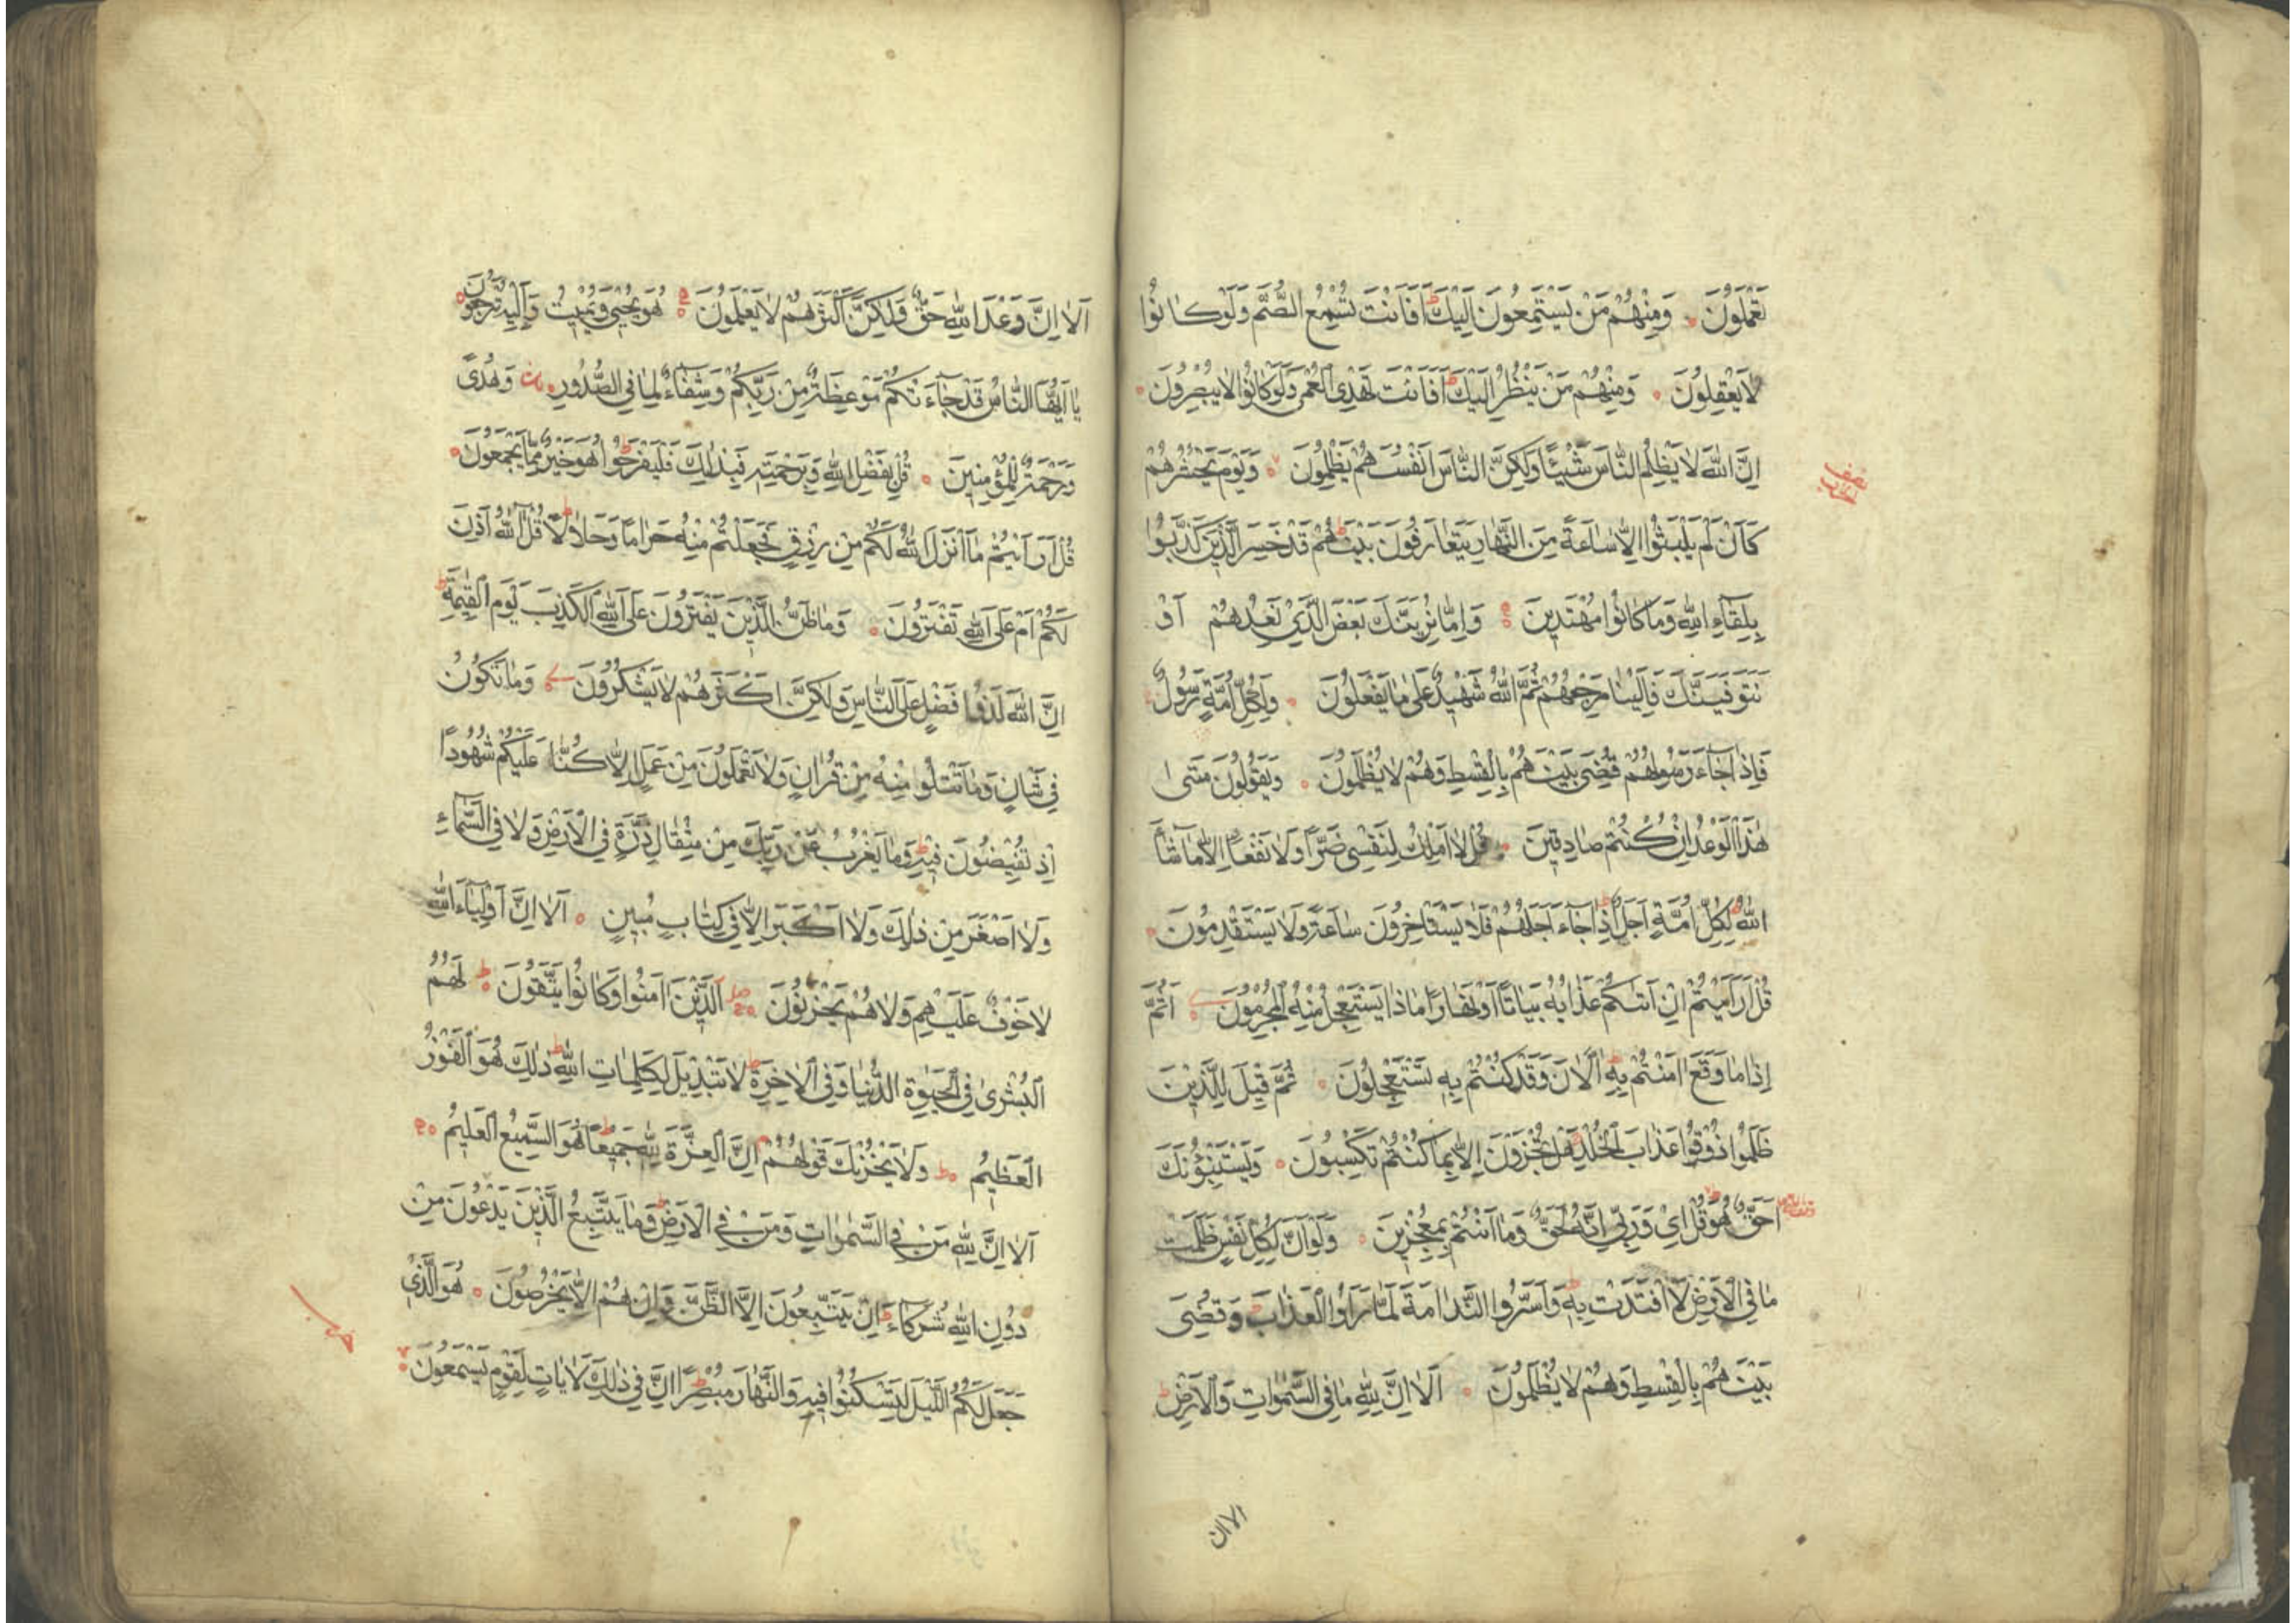 تَعْمَلُونَ وَمِنْهُمْ مَنْ يَسْتَمِعُونَ اِلَيْكَ ط اَفَاَنْتَ تُسْمِعُ الصُّمَّ وَلَوْ كَانُوا
لَا يَعْقِلُونَ وَمِنْهُمْ مَنْ يَنْظُرُ اِلَيْكَ ط اَفَاَنْتَ تَهْدِى الْعُمْىَ وَلَوْ كَانُوا لَا يُبْصِرُونَ
اِنَّ اللّٰهَ لَا يَظْلِمُ النَّاسَ شَيْئًا وَلٰكِنَّ النَّاسَ اَنْفُسَهُمْ يَظْلِمُونَ وَيَوْمَ يَحْشُرُهُمْ
نصف
كَاَنْ لَمْ يَلْبَثُوا اِلَّا سَاعَةً مِنَ النَّهَارِ يَتَعَارَفُونَ بَيْنَهُمْ ط قَدْ خَسِرَ الَّذِينَ كَذَّبُوا
بِلِقَاءِ اللّٰهِ وَمَا كَانُوا مُهْتَدِينَ وَاِمَّا نُرِيَنَّكَ بَعْضَ الَّذِى نَعِدُهُمْ اَوْ
نَتَوَفَّيَنَّكَ فَاِلَيْنَا مَرْجِعُهُمْ ثُمَّ اللّٰهُ شَهِيدٌ عَلٰى مَا يَفْعَلُونَ وَلِكُلِّ اُمَّةٍ رَسُولٌ
فَاِذَا جَاءَ رَسُولُهُمْ قُضِىَ بَيْنَهُمْ بِالْقِسْطِ وَهُمْ لَا يُظْلَمُونَ وَيَقُولُونَ مَتٰى
هٰذَا الْوَعْدُ اِنْ كُنْتُمْ صَادِقِينَ قُلْ لَا اَمْلِكُ لِنَفْسِى ضَرًّا وَلَا نَفْعًا اِلَّا مَا شَاءَ
اللّٰهُ ط لِكُلِّ اُمَّةٍ اَجَلٌ ط اِذَا جَاءَ اَجَلُهُمْ فَلَا يَسْتَاْخِرُونَ سَاعَةً وَلَا يَسْتَقْدِمُونَ
قُلْ اَرَاَيْتُمْ اِنْ اَتٰىكُمْ عَذَابُهُ بَيَاتًا اَوْ نَهَارًا مَاذَا يَسْتَعْجِلُ مِنْهُ الْمُجْرِمُونَ اَثُمَّ
اِذَا مَا وَقَعَ اٰمَنْتُمْ بِهِ ط اٰلْاٰنَ وَقَدْ كُنْتُمْ بِهِ تَسْتَعْجِلُونَ ثُمَّ قِيلَ لِلَّذِينَ
ظَلَمُوا ذُوقُوا عَذَابَ الْخُلْدِ هَلْ تُجْزَوْنَ اِلَّا بِمَا كُنْتُمْ تَكْسِبُونَ وَيَسْتَنْبِؤُنَكَ
اَحَقٌّ هُوَ ط قُلْ اِى وَرَبِّى اِنَّهُ لَحَقٌّ وَمَا اَنْتُمْ بِمُعْجِزِينَ وَلَوْ اَنَّ لِكُلِّ نَفْسٍ ظَلَمَتْ
مَا فِى الْاَرْضِ لَافْتَدَتْ بِهِ ط وَاَسَرُّوا النَّدَامَةَ لَمَّا رَاَوُا الْعَذَابَ وَقُضِىَ
بَيْنَهُمْ بِالْقِسْطِ وَهُمْ لَا يُظْلَمُونَ اَلَا اِنَّ لِلّٰهِ مَا فِى السَّمٰوَاتِ وَالْاَرْضِ ط
الا ان
اَلَا اِنَّ وَعْدَ اللّٰهِ حَقٌّ وَلٰكِنَّ اَكْثَرَهُمْ لَا يَعْلَمُونَ هُوَ يُحْيِى وَيُمِيتُ وَاِلَيْهِ تُرْجَعُونَ
يَا اَيُّهَا النَّاسُ قَدْ جَاءَتْكُمْ مَوْعِظَةٌ مِنْ رَبِّكُمْ وَشِفَاءٌ لِمَا فِى الصُّدُورِ وَهُدًى
وَرَحْمَةٌ لِلْمُؤْمِنِينَ قُلْ بِفَضْلِ اللّٰهِ وَبِرَحْمَتِهِ فَبِذٰلِكَ فَلْيَفْرَحُوا ط هُوَ خَيْرٌ مِمَّا يَجْمَعُونَ
قُلْ اَرَاَيْتُمْ مَا اَنْزَلَ اللّٰهُ لَكُمْ مِنْ رِزْقٍ فَجَعَلْتُمْ مِنْهُ حَرَامًا وَحَلَالًا ط قُلْ اٰللّٰهُ اَذِنَ
لَكُمْ اَمْ عَلَى اللّٰهِ تَفْتَرُونَ وَمَا ظَنُّ الَّذِينَ يَفْتَرُونَ عَلَى اللّٰهِ الْكَذِبَ يَوْمَ الْقِيٰمَةِ ط
اِنَّ اللّٰهَ لَذُو فَضْلٍ عَلَى النَّاسِ وَلٰكِنَّ اَكْثَرَهُمْ لَا يَشْكُرُونَ وَمَا تَكُونُ
فِى شَاْنٍ وَمَا تَتْلُوا مِنْهُ مِنْ قُرْاٰنٍ وَلَا تَعْمَلُونَ مِنْ عَمَلٍ اِلَّا كُنَّا عَلَيْكُمْ شُهُودًا
اِذْ تُفِيضُونَ فِيهِ ط وَمَا يَعْزُبُ عَنْ رَبِّكَ مِنْ مِثْقَالِ ذَرَّةٍ فِى الْاَرْضِ وَلَا فِى السَّمَاءِ
وَلَا اَصْغَرَ مِنْ ذٰلِكَ وَلَا اَكْبَرَ اِلَّا فِى كِتَابٍ مُبِينٍ اَلَا اِنَّ اَوْلِيَاءَ اللّٰهِ
لَا خَوْفٌ عَلَيْهِمْ وَلَا هُمْ يَحْزَنُونَ اَلَّذِينَ اٰمَنُوا وَكَانُوا يَتَّقُونَ ط لَهُمُ
الْبُشْرٰى فِى الْحَيٰوةِ الدُّنْيَا وَفِى الْاٰخِرَةِ ط لَا تَبْدِيلَ لِكَلِمَاتِ اللّٰهِ ط ذٰلِكَ هُوَ الْفَوْزُ
الْعَظِيمُ ط وَلَا يَحْزُنْكَ قَوْلُهُمْ م اِنَّ الْعِزَّةَ لِلّٰهِ جَمِيعًا ط هُوَ السَّمِيعُ الْعَلِيمُ
اَلَا اِنَّ لِلّٰهِ مَنْ فِى السَّمٰوَاتِ وَمَنْ فِى الْاَرْضِ ط وَمَا يَتَّبِعُ الَّذِينَ يَدْعُونَ مِنْ
دُونِ اللّٰهِ شُرَكَاءَ ط اِنْ يَتَّبِعُونَ اِلَّا الظَّنَّ وَاِنْ هُمْ اِلَّا يَخْرُصُونَ هُوَ الَّذِى
جَعَلَ لَكُمُ الَّيْلَ لِتَسْكُنُوا فِيهِ وَالنَّهَارَ مُبْصِرًا ط اِنَّ فِى ذٰلِكَ لَاٰيَاتٍ لِقَوْمٍ يَسْمَعُونَ